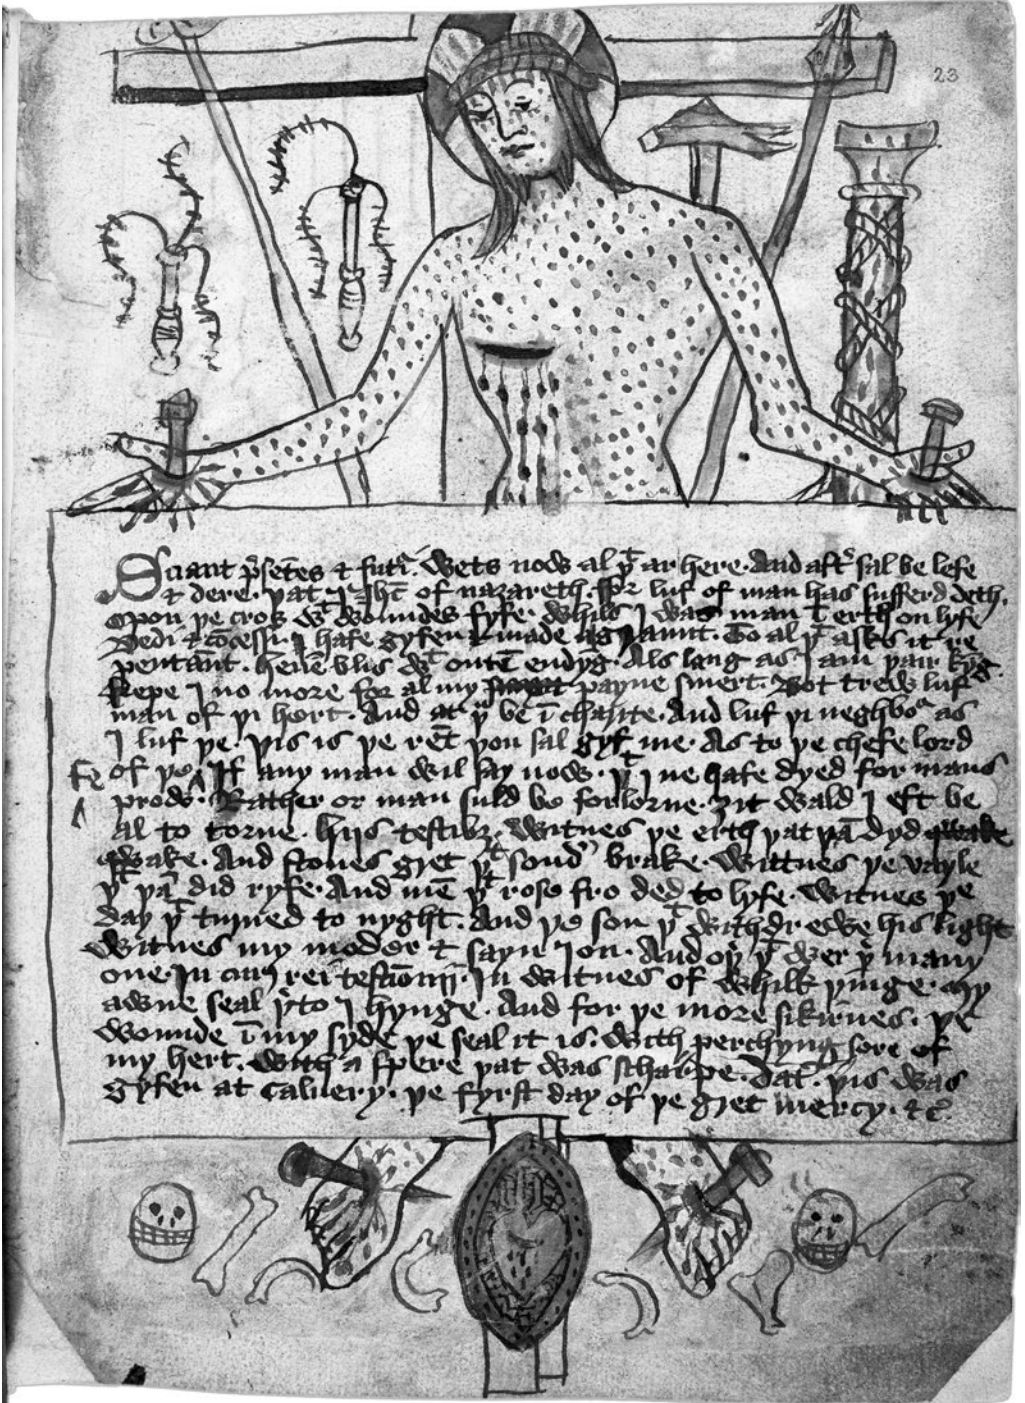 23
Sciant p̄setēs & futī. Wets now al þᵗ ar here. And aftʳ sal be lefe
& dere. þat I Ihc̄ of nazareth. ffor luf of man has sufferd deth.
Opon þe cros wᵗ woundes fyfe. Whils I was man ī erth on lyfe
Dedi & cōcessi. I hafe gyfen & made a gꝛaunt. To al þᵗ asks it re
pentānt. heuē blis wᵗ outē endyḡ. Als lang as I am þair kyḡ.
kepe I no more for al my smert payne smert. Bot trew luf
man of þi hert. And at þᵘ be ī charite. And luf þi neghboʳ as
I luf þe. þis is þe rēt þou sal gyf me. As to þe chefe lord
of þe fe If any man wil say now. þᵗ I ne hafe dyed for mans
prow. Rather or man suld be forlorne. ȝit wald I eft be
al to torne. hijs testibȝ. Witnes þe erth þat þā dyd qwake
qwake. And stones gꝛet þᵗ sond brake. Wittnes þe vayle
þᵗ þā did ryfe. And mē þᵗ rose fro ded to lyfe. Witnes þe
day þᵗ turned to nyght. And þe son þᵗ withdrewe his light
Witnes my moder & sayn Ion. And oþʳ þᵗ wer þʳ many
one. In cuiꝰ rei testiōm. In witnes of whilk þinge. my
awne seal þʳto I hynge. And for þe more sikirnes. þe
wounde ī my syde þe seal it is. With perchyng sore of
my hert. With a spere þat was scharpe. Dat̄. þis was
gyfen at caluery. þe fyrst day of þe gꝛet mercy. &c̄.